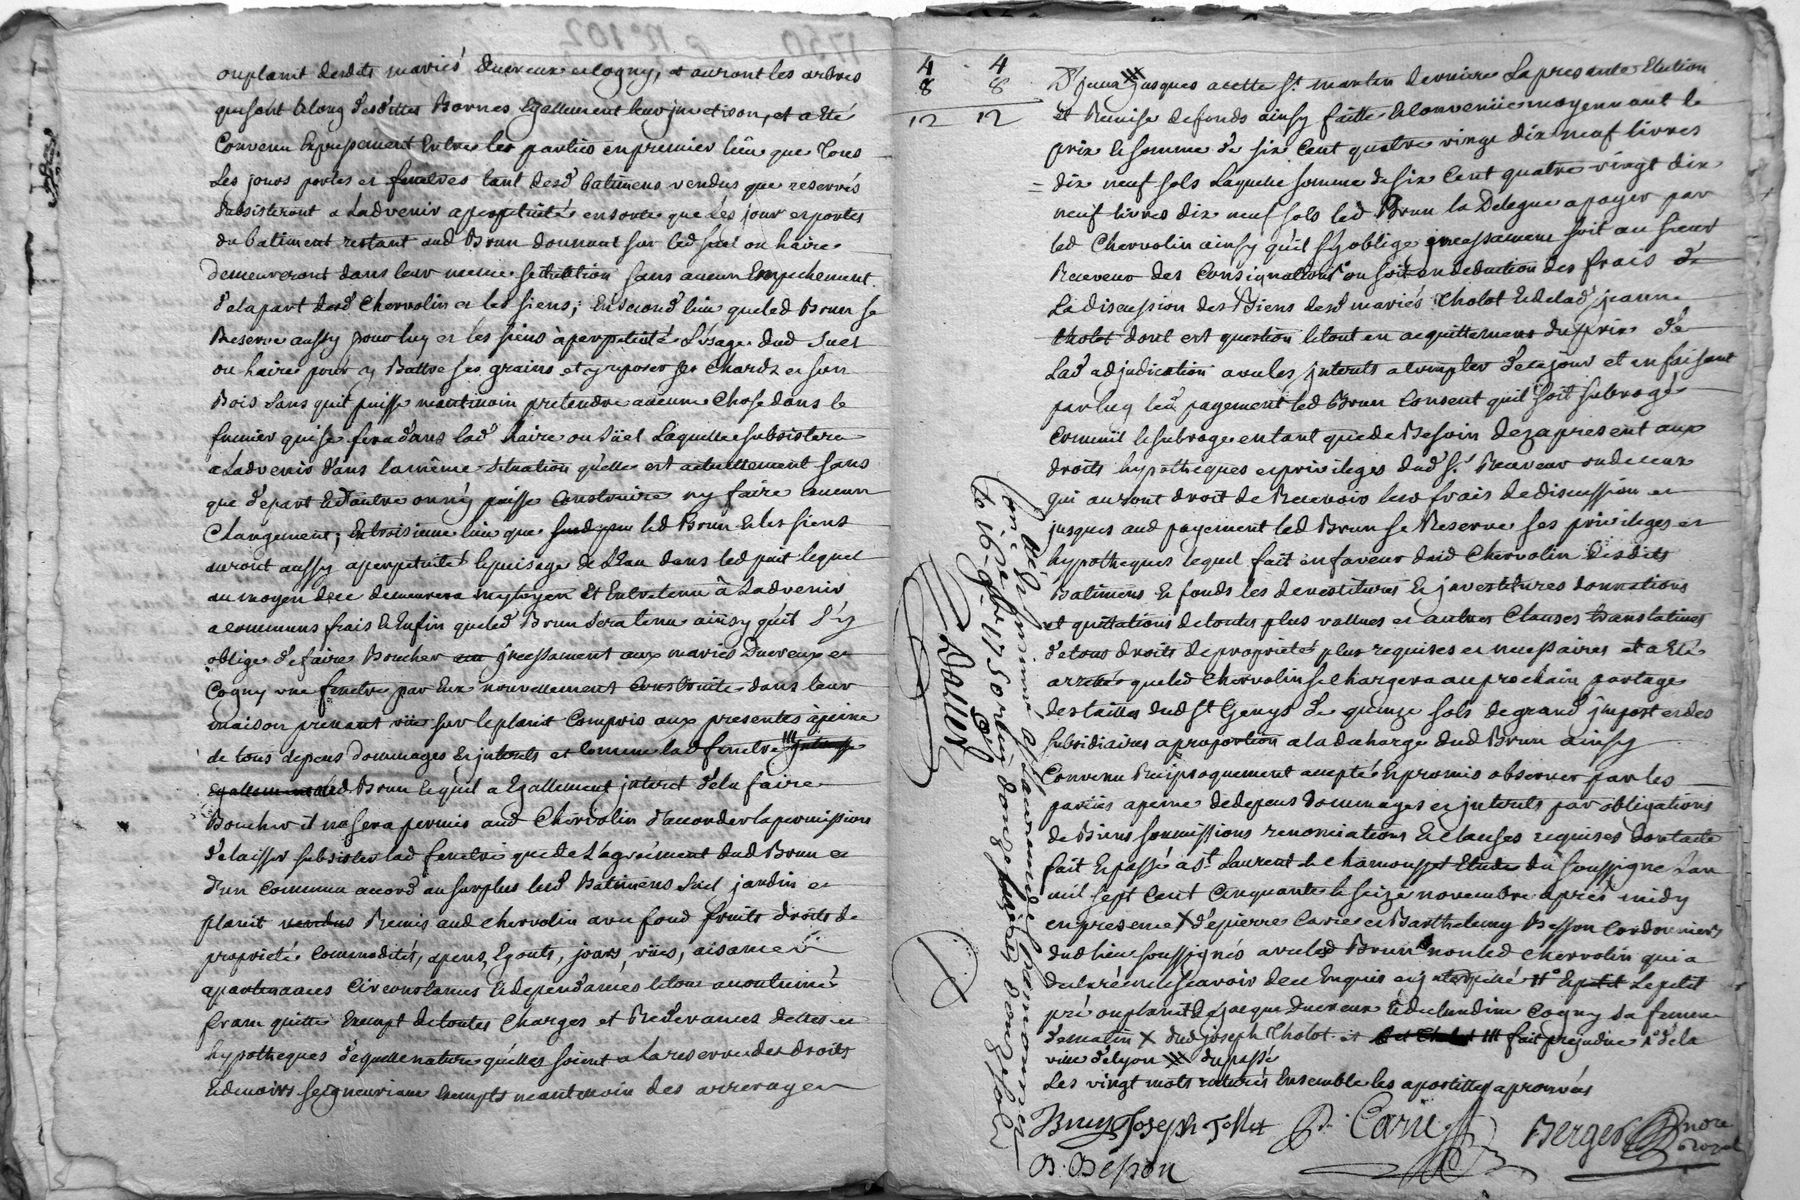 ou planit desdits mariés Ducreux et Cogny, et auront les arbres
qui sont le long desdittes Bornes Egallement leur jnction, et a Eté
Convenu Expressement Entre les parties en premier lieu que Tous
Les jours portes et fenetres tant desd. batimens vendus que reservés
Subsisteront a Ladvenir a perpetuité ensorte que Les jour et portes
du batiment restant aud Brun donnant sur led suel ou haire
demeureront dans leur meme situation sans aucun Empechement
de la part dud Chervolin et les siens; En second lieu que led Brun se
Reserve aussy pour luy et les siens à perpetuité L'usage dud suel
ou haire pour y Battre ses grains et y reposer ses Chards et son
Bois sans qu'il puisse neantmoin pretendre aucune Chose dans le
fumier qui se fera dans lad haire ou suel Laquelle subsistera
a Ladvenir dans la même situation qu'elle est actuellement sans
que de part Et d'autre on n'y puisse Construire ny faire aucun
Changement; En troisieme lieu que led Brun Et les siens
auront aussy a perpetuité le puisage de L'eau dans led puit lequel
au moyen dece demeurera mytoyen Et Entretenu à Ladvenir
a communs frais Et Enfin que led Brun sera tenu ainsy qu'il s'y
oblige de faire Boucher jncessament aux mariés Ducreux et
Cogny une fenetre par Eux nouvellement Construite dans leur
maison prenant vüe sur le planit Compris aux presentes à peine
de tous depens dommages Et jnterets et comme lad fenetre
led Brun Lequel a Egallement jnteret de la faire
Boucher il ne sera permis aud Chervolin d'accorder la permission
de laisser subsister lad fenetre que de L'agreément dud Brun et
d'un commun accord au surplus lesd Batimens suel jardin et
planit vendus Remis aud Chervolin avec fond fruits droits de
proprieté Commodités, apens, Egouts, jours, vües, aisances
apartenances Circonstances Et dependances le tout
franc quitte Exempt de toutes Charges et Redevances dettes et
hypotheques de quelle nature qu'elles soient a la reserve des droits
Et devoirs seigneuriaux Exempts neantmoin des arrerages
4 4
8 8
12 12
jusques a cette St. martin derniere La presante Elution
et Remise de fonds ainsy faitte Et Convenüe moyennant le
prix Et somme de six Cent quatre vingt dix neuf livres
dix neuf sols Laquelle somme de six Cent quatre vingt dix
neuf livres dix neuf sols led Brun la Delegue a payer par
led Chervolin ainsy qu'il s'y oblige jncessament soit au sieur
Receveur des Consignations ou soit en deduction des frais de
La discussion des Biens desd mariés Tholot Et de lad jeanne
tholot dont est question le tout en acquittement du prix de
Lad adjudication avec les jnterets a compter de ce jour et en faisant
par luy led. payement led Brun Consent qu'il soit subrogé
comme il le subroge en tant que de Besoin dez a present aux
droits hypotheques et privileges dud Sr. Receveur ou de ceux
qui auront droit de Recevoir les frais de discussion et
jusques aud payement led Brun se Reserve ses privileges et
hypotheques lequel fait en faveur dud Chervolin desdits
Batimens Et fonds les devestitures Et jnvestitures donnations
et quittations de toutes plus vallues et autres Clauses translatives
de tous droits de proprieté plus requises et necessaires et a Eté
arreté que led Chervolin se chargera au prochain partage
des tailles dud St Genys De quinze sols de grand jmpost et des
subsidiaires a proportion a la decharge dud Brun ainsy
Convenu Reciproquement accepté Et promis observer par les
parties a peine de depens dommages et jnterets par obligations
de Biens soumissions renonciations Et clauses requises Dont acte
fait Et passé a St. Laurent de Chamousset Etude du soussigné L'an
mil sept Cent Cinquante le seize novembre aprés midy
en presence X de pierre Carie et Barthelemy Besson Cordonniers
dud lieu soussignés avec led Brun non led Chervolin qui a
declaré ne le scavoir dece Enquis et jnterpellé # Le petit
pré ou planit de jacque Ducreux Et de Claudine Cogny sa femme
de matin X dud joseph Tholot fait prejudice de la
ville de Lyon du passé
Les vingt mots raturés Ensemble les apostilles aprouvés
Brun Joseph Tollet P. Carie Berger nore royal
B. Besson
Con.lé a St Laurent de Chamousset
le 16 e 9bre 1750 reçu douze sols